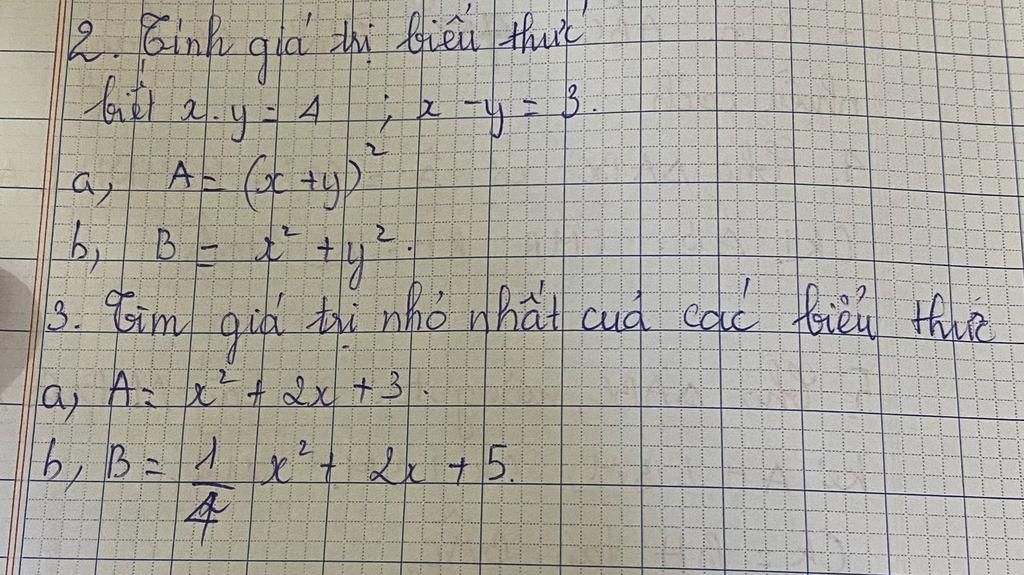 2. Tính giá trị biểu thức
biết x.y = 4 ; x - y = 3.
a, A = (x + y)²
b, B = x² + y².
3. Tìm giá trị nhỏ nhất cuả các biểu thức
a, A = x² + 2x + 3.
b, B = 1/4 x² + 2x + 5.